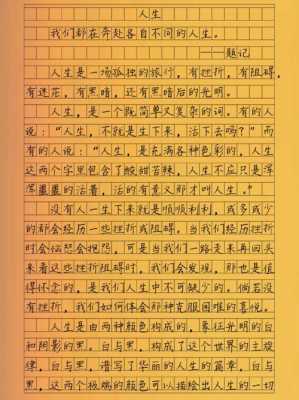 人生
我们都在奔赴各自不同的人生。
——题记
人生是一场孤独的旅行,有挫折,有阻碍,
有迷茫,有黑暗,还有黑暗后的光明。
人生,是一个既简单又复杂的词。有的人
说:“人生,不就是生下来,活下去吗?”而
有的人说:“人生,是充满各种色彩的,人生
这两个字里包含了酸甜苦辣,人生不应只是浑
浑噩噩的活着,活的有意义那才叫人生。”
没有人一生下来就是顺顺利利,或多或少
的都会经历一些挫折或阻碍。当我们经历挫折
时会恼怒会抱怨,可是当我们一路走来再回头
来看这些挫折阻碍时,我们会发现,那也是值
得怀念的,是我们人生中不可缺少的。倘若没
有挫折,我们如何体会那种克服困难的喜悦。
人生是由两种颜色构成的,象征光明的白
和阴影的黑。白与黑,构成了这个世界的主旋
律,白与黑,谱写了华丽的人生的篇章,白与
黑,这两个极端的颜色可以描绘出人生的一切